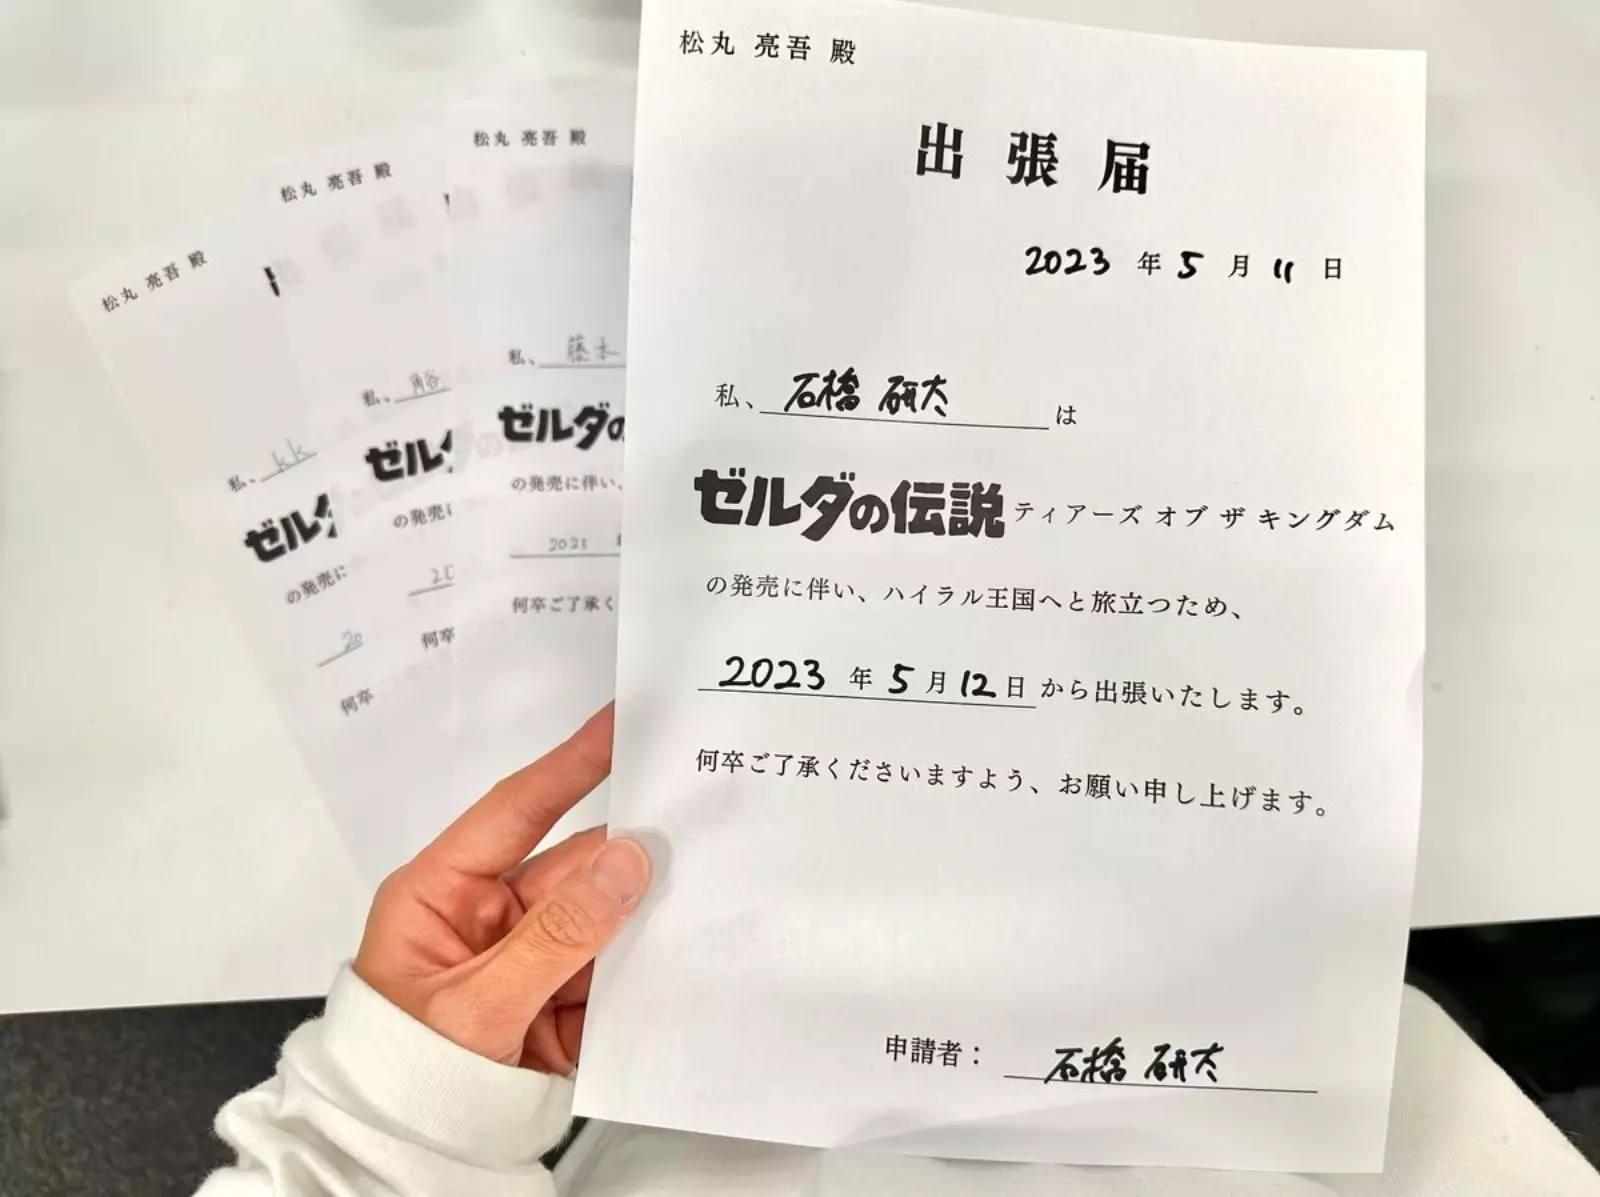 松丸 亮吾 殿
出張届
2023 年 5 月 11 日
私、石橋 研太 は
ゼルダの伝説 ティアーズ オブ ザ キングダム
の発売に伴い、ハイラル王国へと旅立つため、
2023 年 5 月 12 日 から出張いたします。
何卒ご了承くださいますよう、お願い申し上げます。
申請者： 石橋 研太
松丸 亮吾 殿
私、藤木
ゼルダの
の発売に伴い、
2023
何卒ご了承く
松丸 亮吾 殿
私、
ゼル
の発売
何卒
松丸 亮吾 殿
私、kk
ゼル
の発売に
20
何卒